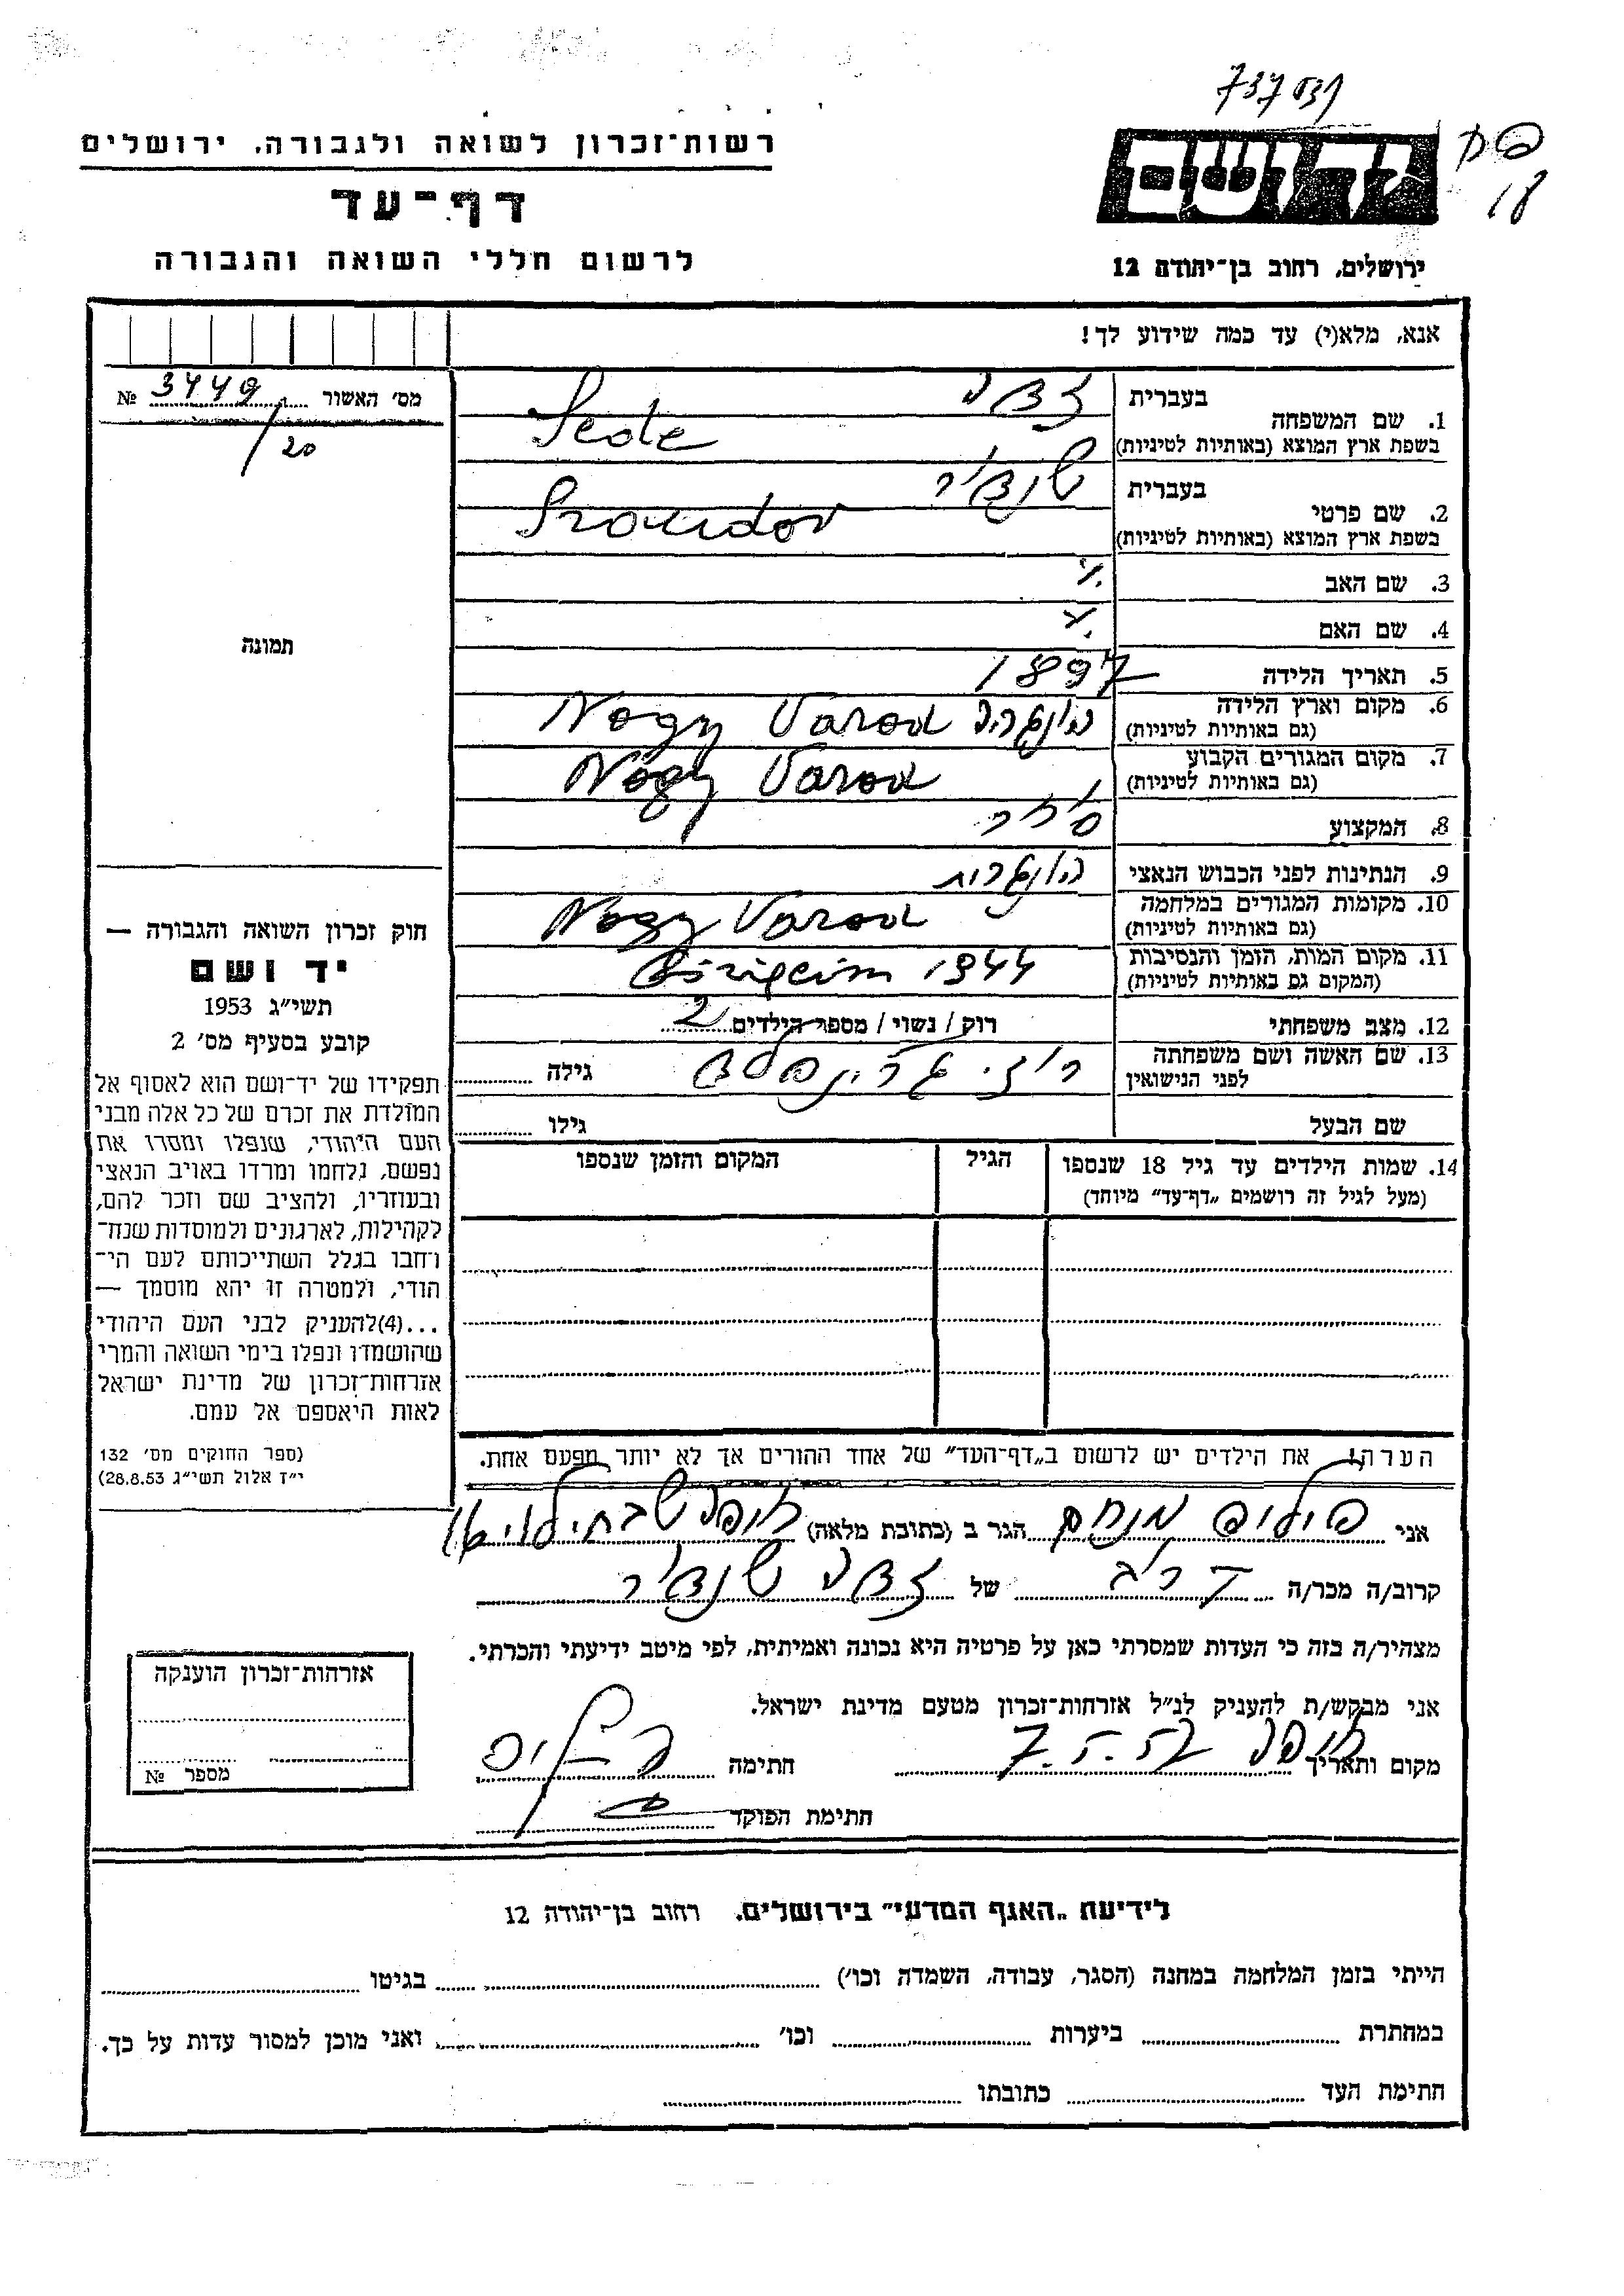 רשות־זכרון לשואה ולגבורה, ירושלים
דף־עד
לרשום חללי השואה והגבורה
ירושלים, רחוב בן־יהודה 12
אנא, מלא(י) עד כמה שידוע לך!
מס' האשור 3449 №
20
1. שם המשפחה
בעברית
בשפת ארץ המוצא (באותיות לטיניות)
2. שם פרטי
בעברית שנדור
בשפת ארץ המוצא (באותיות לטיניות)
3. שם האב
4. שם האם
5. תאריך הלידה 1897
6. מקום וארץ הלידה
(גם באותיות לטיניות) הונגריה Nagy Varad
7. מקום המגורים הקבוע
(גם באותיות לטיניות) Nagy Varad
8. המקצוע סוחר
9. הנתינות לפני הכבוש הנאצי הונגרית
10. מקומות המגורים במלחמה
(גם באותיות לטיניות) Nagy Varad
11. מקום המות, הזמן והנסיבות
(המקום גם באותיות לטיניות) 1944
12. מצב משפחתי רוק / נשוי / מספר הילדים 2
13. שם האשה ושם משפחתה
לפני הנישואין גילה
שם הבעל גילו
14. שמות הילדים עד גיל 18 שנספו
(מעל לגיל זה רושמים „דף־עד" מיוחד)
הגיל
המקום והזמן שנספו
הערה! את הילדים יש לרשום ב„דף־העד" של אחד ההורים אך לא יותר מפעם אחת.
תמונה
חוק זכרון השואה והגבורה —
יד ושם
תשי"ג 1953
קובע בסעיף מס' 2
תפקידו של יד־ושם הוא לאסוף אל
המולדת את זכרם של כל אלה מבני
העם היהודי, שנפלו ומסרו את
נפשם, נלחמו ומרדו באויב הנאצי
ובעוזריו, ולהציב שם וזכר להם,
לקהילות, לארגונים ולמוסדות שנח־
רחבו בגלל השתייכותם לעם הי־
הודי, ולמטרה זו יהא מוסמך —
...(4)להעניק לבני העם היהודי
שהושמדו ונפלו בימי השואה והמרי
אזרחות־זכרון של מדינת ישראל
לאות היאספם אל עמם.
(ספר החוקים מס' 132
י"ז אלול תשי"ג 28.8.53)
אני פיליפ מנחם הגר ב (כתובת מלאה) חיפה
קרוב/ה מכר/ה של שנדור
מצהיר/ה בזה כי העדות שמסרתי כאן על פרטיה היא נכונה ואמיתית, לפי מיטב ידיעתי והכרתי.
אני מבקש/ת להעניק לנ"ל אזרחות־זכרון מטעם מדינת ישראל.
מקום ותאריך חיפה חתימה פיליפ
חתימת הפוקד
אזרחות־זכרון הוענקה
מספר №
לידיעת „האגף המדעי" בירושלים, רחוב בן־יהודה 12
הייתי בזמן המלחמה במחנה (הסגר, עבודה, השמדה וכו') בגיטו
במחתרת ביערות וכו' ואני מוכן למסור עדות על כך.
חתימת העד כתובתו